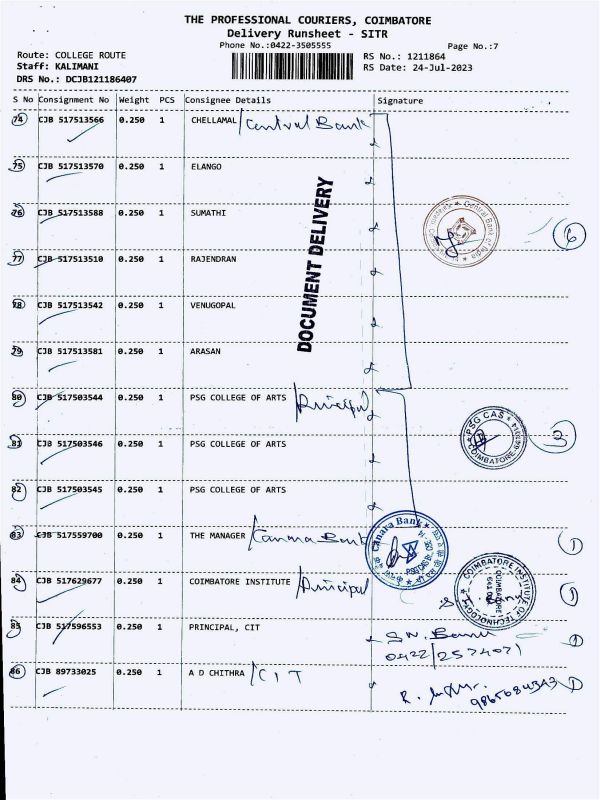 THE PROFESSIONAL COURIERS, COIMBATORE
Delivery Runsheet - SITR
Phone No.:0422-3505555
Page No.:7
Route: COLLEGE ROUTE
RS No.: 1211864
Staff: KALIMANI
RS Date: 24-Jul-2023
DRS No.: DCJB121186407
S No Consignment No Weight PCS Consignee Details Signature
74 CJB 517513566 0.250 1 CHELLAMAL / Central Bank
75 CJB 517513570 0.250 1 ELANGO
76 CJB 517513588 0.250 1 SUMATHI
Central Bank of India
6
77 CJB 517513510 0.250 1 RAJENDRAN
DOCUMENT DELIVERY
78 CJB 517513542 0.250 1 VENUGOPAL
79 CJB 517513581 0.250 1 ARASAN
80 CJB 517503544 0.250 1 PSG COLLEGE OF ARTS / Principal
81 CJB 517503546 0.250 1 PSG COLLEGE OF ARTS
PSG CAS COIMBATORE
3
82 CJB 517503545 0.250 1 PSG COLLEGE OF ARTS
83 CJB 517559700 0.250 1 THE MANAGER / Canara Bank
Canara Bank
1
84 CJB 517629677 0.250 1 COIMBATORE INSTITUTE / Principal
COIMBATORE INSTITUTE OF TECHNOLOGY
COIMBATORE
1
85 CJB 517596553 0.250 1 PRINCIPAL, CIT
1
0422/2574071
86 CJB 89733025 0.250 1 A D CHITHRA / CIT
1